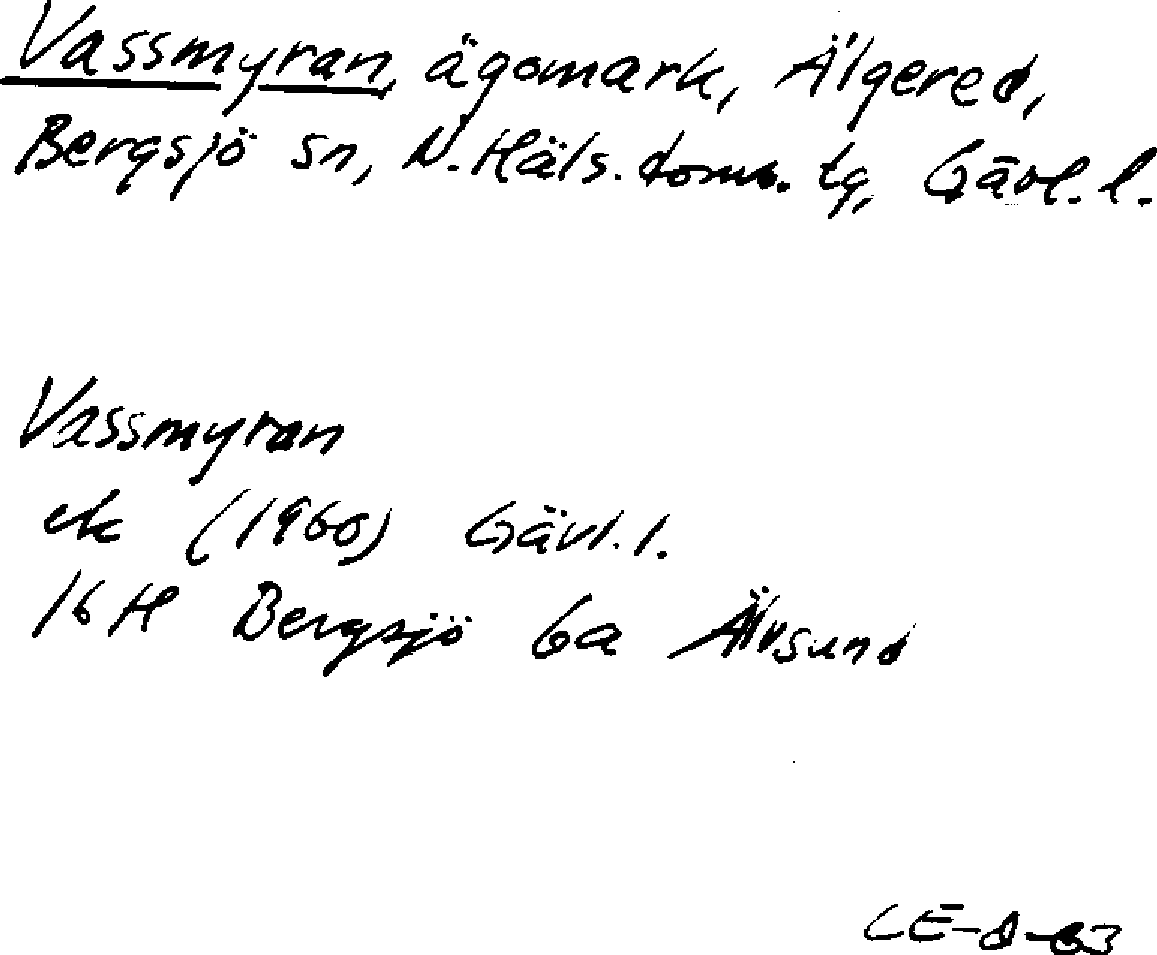 Vassmyran, ägomark, Älgered,
Bergsjö sn, N. Häls. doms. tg, Gävl. l.
Vassmyran
ek (1960) Gävl. l.
16 H Bergsjö 6a Älvsund